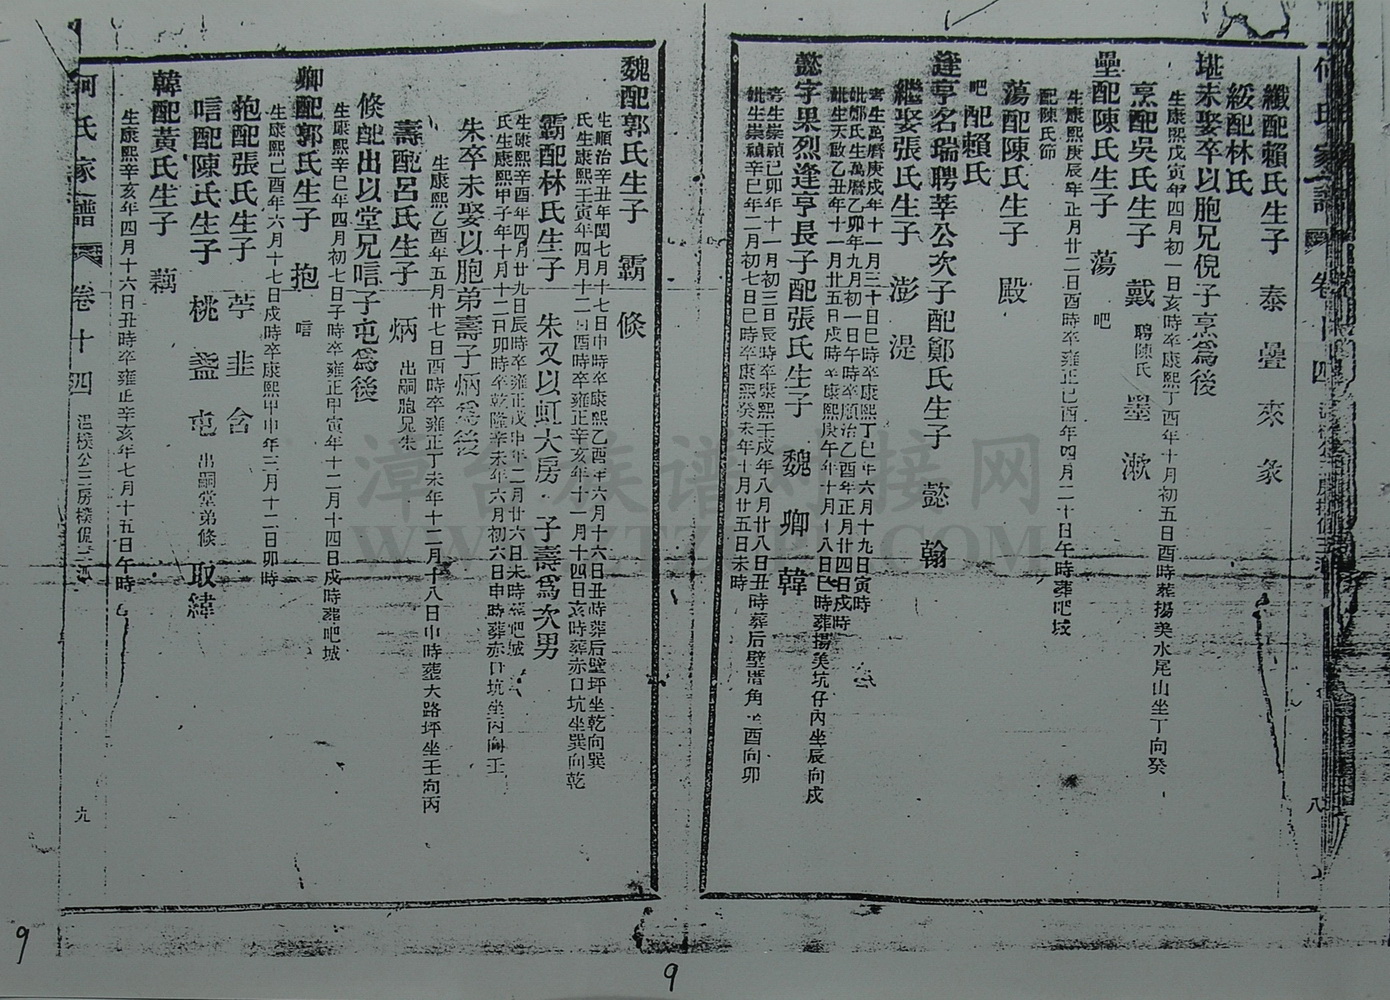 何氏家譜 卷十四 八
纖配賴氏生子 泰 疊 來 象
綏配林氏
堪未娶卒以胞兄倪子烹為後
生康熙戊寅年四月初一日亥時卒康熙丁酉年十月初五日酉時葬揚美水尾山坐丁向癸
烹配吳氏生子 戴 聘陳氏 墨 漱
壘配陳氏生子 蕩 吧
生康熙庚辰年正月廿二日酉時卒雍正己酉年四月二十日午時葬吧城
配陳氏節
蕩配陳氏生子 殿
吧配賴氏
逢亨名瑞聘莘公次子配鄭氏生子 懿 翰
繼娶張氏生子 澎 湜
考生萬曆庚戌年十一月三十日巳時卒康熙丁巳年六月十九日寅時
妣鄭氏生萬曆乙卯年九月初一日午時卒順治乙酉年正月廿四日戌時
妣生天啟乙丑年十一月廿五日戌時卒康熙庚午年十月十八日巳時葬揚美坑仔內坐辰向戌
懿字果烈逢亨長子配張氏生子 魏 卿 韓
考生崇禎己卯年十一月初三日辰時卒康熙壬戌年八月廿八日丑時葬后壁厝角坐酉向卯
妣生崇禎辛巳年二月初七日巳時卒康熙癸未年十月廿五日未時
魏配郭氏生子 霸 倏
生順治辛丑年閏七月十七日申時卒康熙乙酉年六月十六日丑時葬后壁坪坐乾向巽
氏生康熙壬寅年四月十二日酉時卒雍正辛亥年十一月十四日亥時葬赤口坑坐巽向乾
霸配林氏生子 朱又以虹大房 子壽為次男
生康熙辛酉年四月廿九日辰時卒雍正戊申年二月廿六日未時葬吧城
氏生康熙甲子年十月十二日卯時卒乾隆辛未年六月初六日申時葬赤口坑坐丙向壬
朱卒未娶以胞弟壽子炳為後
生康熙乙酉年五月廿七日酉時卒雍正丁未年十二月十八日申時葬大路坪坐壬向丙
壽配呂氏生子 炳 出嗣胞兄朱
倏配出以堂兄唁子屯為後
生康熙辛巳年四月初七日子時卒雍正甲寅年十二月十四日戌時葬吧城
卿配郭氏生子 抱 唁
生康熙己酉年六月十七日戌時卒康熙甲申年三月十二日卯時
抱配張氏生子 荸 韭 含
唁配陳氏生子 桃 盞 屯 出嗣堂弟倏 取緯
韓配黃氏生子 藕
生康熙辛亥年四月十六日丑時卒雍正辛亥年七月十五日午時
何氏家譜 卷十四 九
漳台族谱对接网
WWW.ZTZUPU.COM
9
9